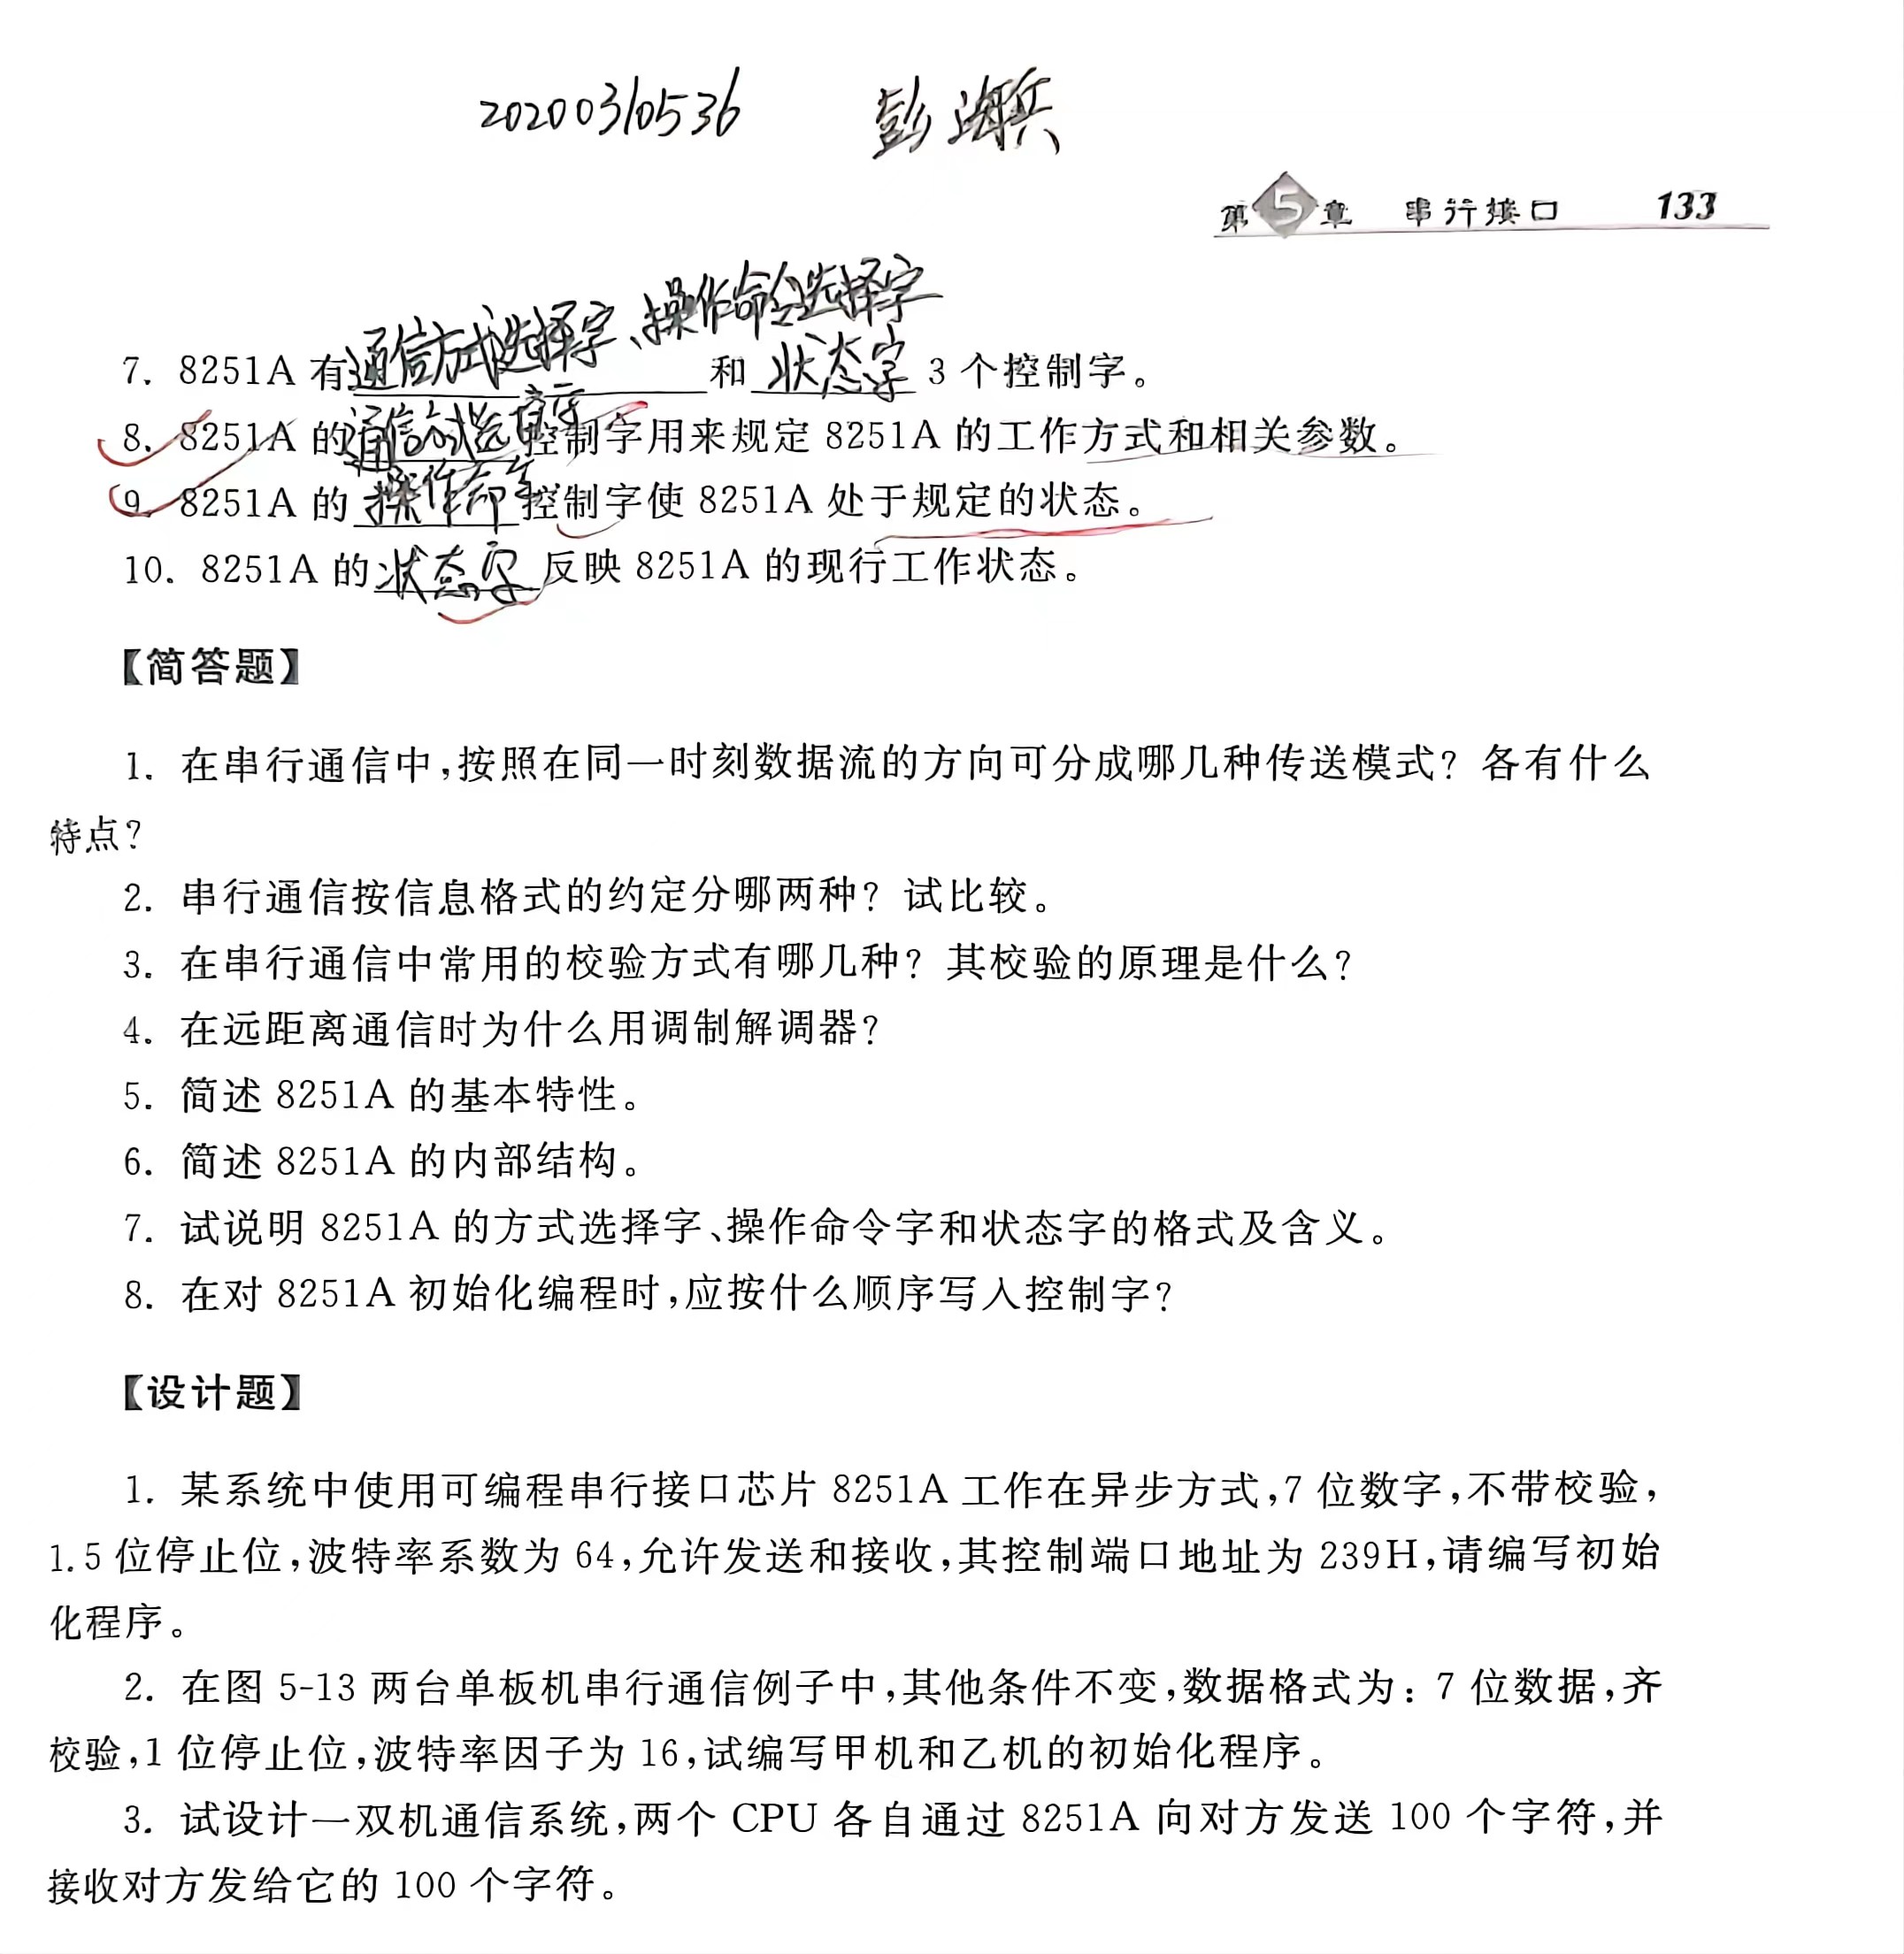 20200310536 彭海兵
第5章 串行接口 133
通信方式选择字、操作命令选择字
7. 8251A 有 和 状态字 3 个控制字。
8. 8251A 的通信方式选择字控制字用来规定 8251A 的工作方式和相关参数。
9. 8251A 的操作命令控制字使 8251A 处于规定的状态。
10. 8251A 的状态字反映 8251A 的现行工作状态。
【简答题】
1. 在串行通信中,按照在同一时刻数据流的方向可分成哪几种传送模式? 各有什么
特点?
2. 串行通信按信息格式的约定分哪两种? 试比较。
3. 在串行通信中常用的校验方式有哪几种? 其校验的原理是什么?
4. 在远距离通信时为什么用调制解调器?
5. 简述 8251A 的基本特性。
6. 简述 8251A 的内部结构。
7. 试说明 8251A 的方式选择字、操作命令字和状态字的格式及含义。
8. 在对 8251A 初始化编程时,应按什么顺序写入控制字?
【设计题】
1. 某系统中使用可编程串行接口芯片 8251A 工作在异步方式,7 位数字,不带校验,
1.5 位停止位,波特率系数为 64,允许发送和接收,其控制端口地址为 239H,请编写初始
化程序。
2. 在图 5-13 两台单板机串行通信例子中,其他条件不变,数据格式为: 7 位数据,齐
校验,1 位停止位,波特率因子为 16,试编写甲机和乙机的初始化程序。
3. 试设计一双机通信系统,两个 CPU 各自通过 8251A 向对方发送 100 个字符,并
接收对方发给它的 100 个字符。